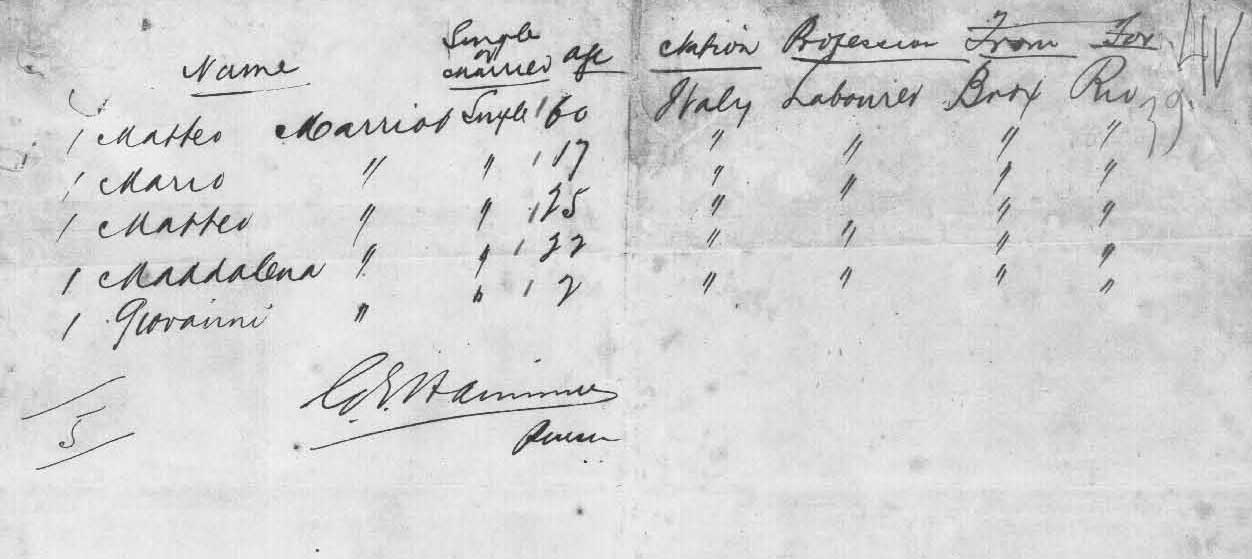 Name Single or Married Age Nation Profession From For
1 Matteo Marriot Single 1 60 Italy Labourer Bdx Rio
1 Mario " " 1 17 " " " "
1 Matteo " " 1 25 " " " "
1 Maddalena " " 1 22 " " " "
1 Giovanni " " 1 2 " " " "
5
Purser